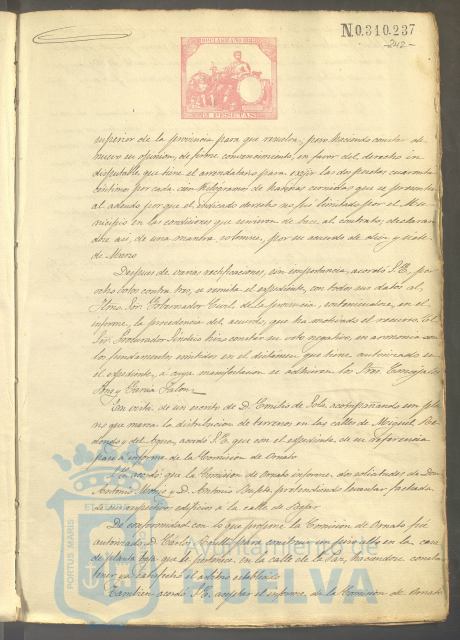 N0.310.237
-242-
75 PESETAS
superior de la provincia para que resuelva; pero haciendo constar de
nuevo su opinion, de pobre convencimiento, en favor del derecho in
disputable que tiene el arrendatario para exigir las dos pesetas cuarenta
céntimos por cada cien kilogramos de harinas cernidas que se presenten
al adeudo por que el indicado derecho no fué limitado por el Mu-
nicipio en las condiciones que sirvieron de base al contrato, declaran-
dose así, de una manera solemne, por su acuerdo de diez y siete
de Marzo
Despues de varias rectificaciones, sin importancia, acordó S.E., por
ocho votos contra tres, se remita el expediente, con todos sus datos al
Ilmo. Sor. Gobernador Civil de la provincia, sosteniendose, en el
informe, la procedencia del acuerdo, que ha motivado el recurso. El
Sor. Procurador Síndico hizo constar su voto negativo, en armonia con
los fundamentos emitidos en el dictámen que tiene autorizado en
el expediente, á cuya manifestacion se adhirieron los Sres. Concejales
y Garcia
En vista de un escrito de D. Emilio de Sola, acompañando un pla-
no que marca la distribucion de terrenos en las calles de Miguel Re-
dondo y del Agua, acordó S.E. que con el expediente de su referencia
pase á informe de la Comision de Ornato
Se acordó que la Comision de Ornato informe dos solicitudes de Don
Antonio y D. Antonio pretendiendo levantar fachada
de sus respectivos edificios á la calle de Béjar
De conformidad con lo que propone la Comision de Ornato fué
autorizado D. para construir un pinallo en la casa
de planta baja que le pertenece en la calle de la Paz, haciendose consta
tener ya satisfecho el arbitrio establecido
Tambien acordó S.E. aceptar el informe de la Comision de Ornato
PORTUS MARIS
Ayuntamiento de
HUELVA